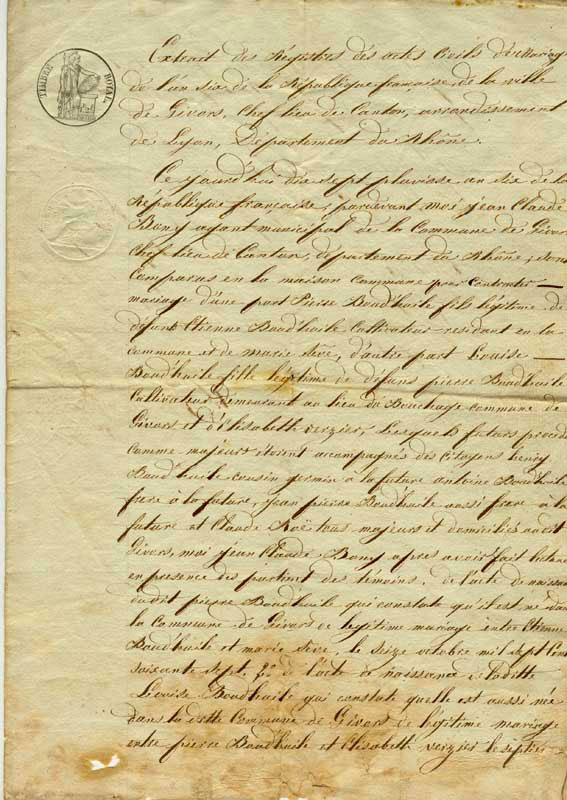 TIMBRE ROYAL
Extrait des Régistres des actes Civils de Mariage
de l'an six de la République française de la ville
de Givors, Chef lieu de Canton, arrondissement
de Lyon, Département du Rhône.
Ce jourd'hui dix sept pluviose an six de la
République française, pardevant moi jean Claude
Bony agent municipal de la Commune de Givors
Chef lieu de Canton, département du Rhône, sont
Comparus en la maison Commune pour Contracter —
mariage d'une part Pierre Boud'huile fils légitime de
défunt Etienne Boud'huile Cultivateur residant en la
Commune et de marie Sève, d'autre part Louise —
Boud'huile fille légitime de défunt pierre Boud'huile
Cultivateur demeurant au lieu du Bouchage commune de
Givors et d'Elisabette verzier, Lesquels futurs procédant
Comme majeurs étoient accompagnés des citoyens henry
Boud'huile cousin germin à la future antoine Boud'huile
frere à la future, jean pierre Boud'huile aussi frere à la
future et Claude tous majeurs et domiciliés audit
Givors, moi jean Claude Bony apres avoir fait lecture
en presence des parties et des témoins, de l'acte de naissance
dudit pierre Boud'huile qui constate qu'il est né dans
la Commune de Givors de légitime mariage entre Etienne
Boud'huile et marie Sève, le seize octobre mil sept Cent
soixante sept. 2º de l'acte de naissance de ladite
Louise Boud'huile qui constate quelle est aussi née
dans la ditte Commune de Givors de légitime mariage
entre pierre Boud'huile et Elisabeth verzier le sept